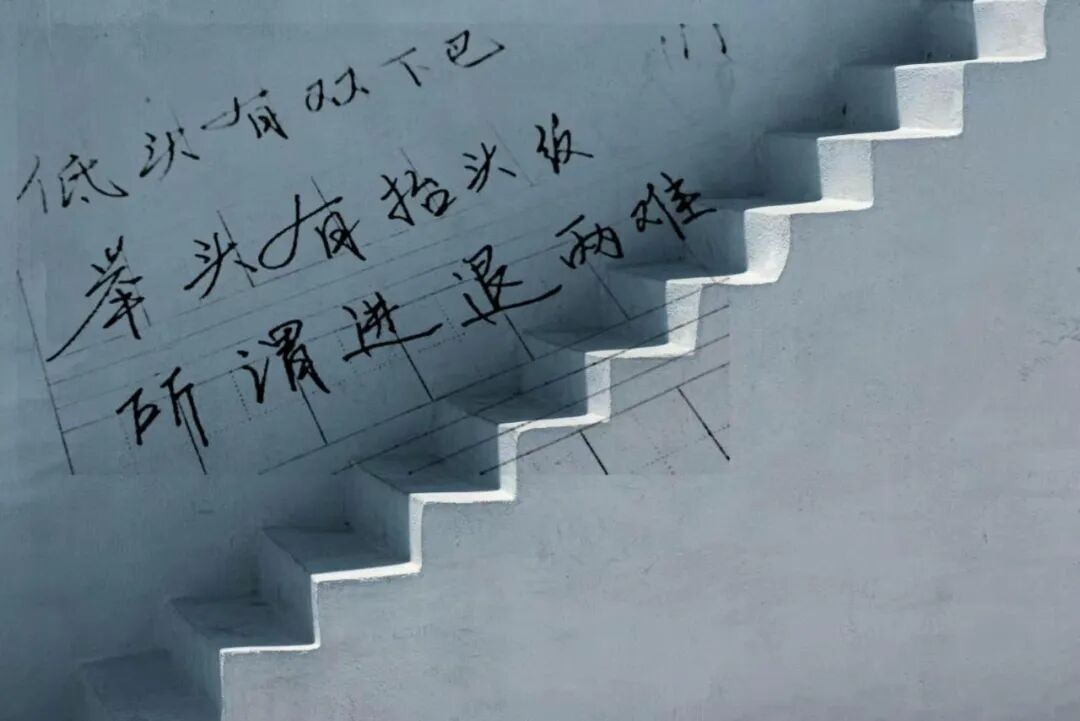 低头有双下巴
举头有抬头纹
所谓进退两难